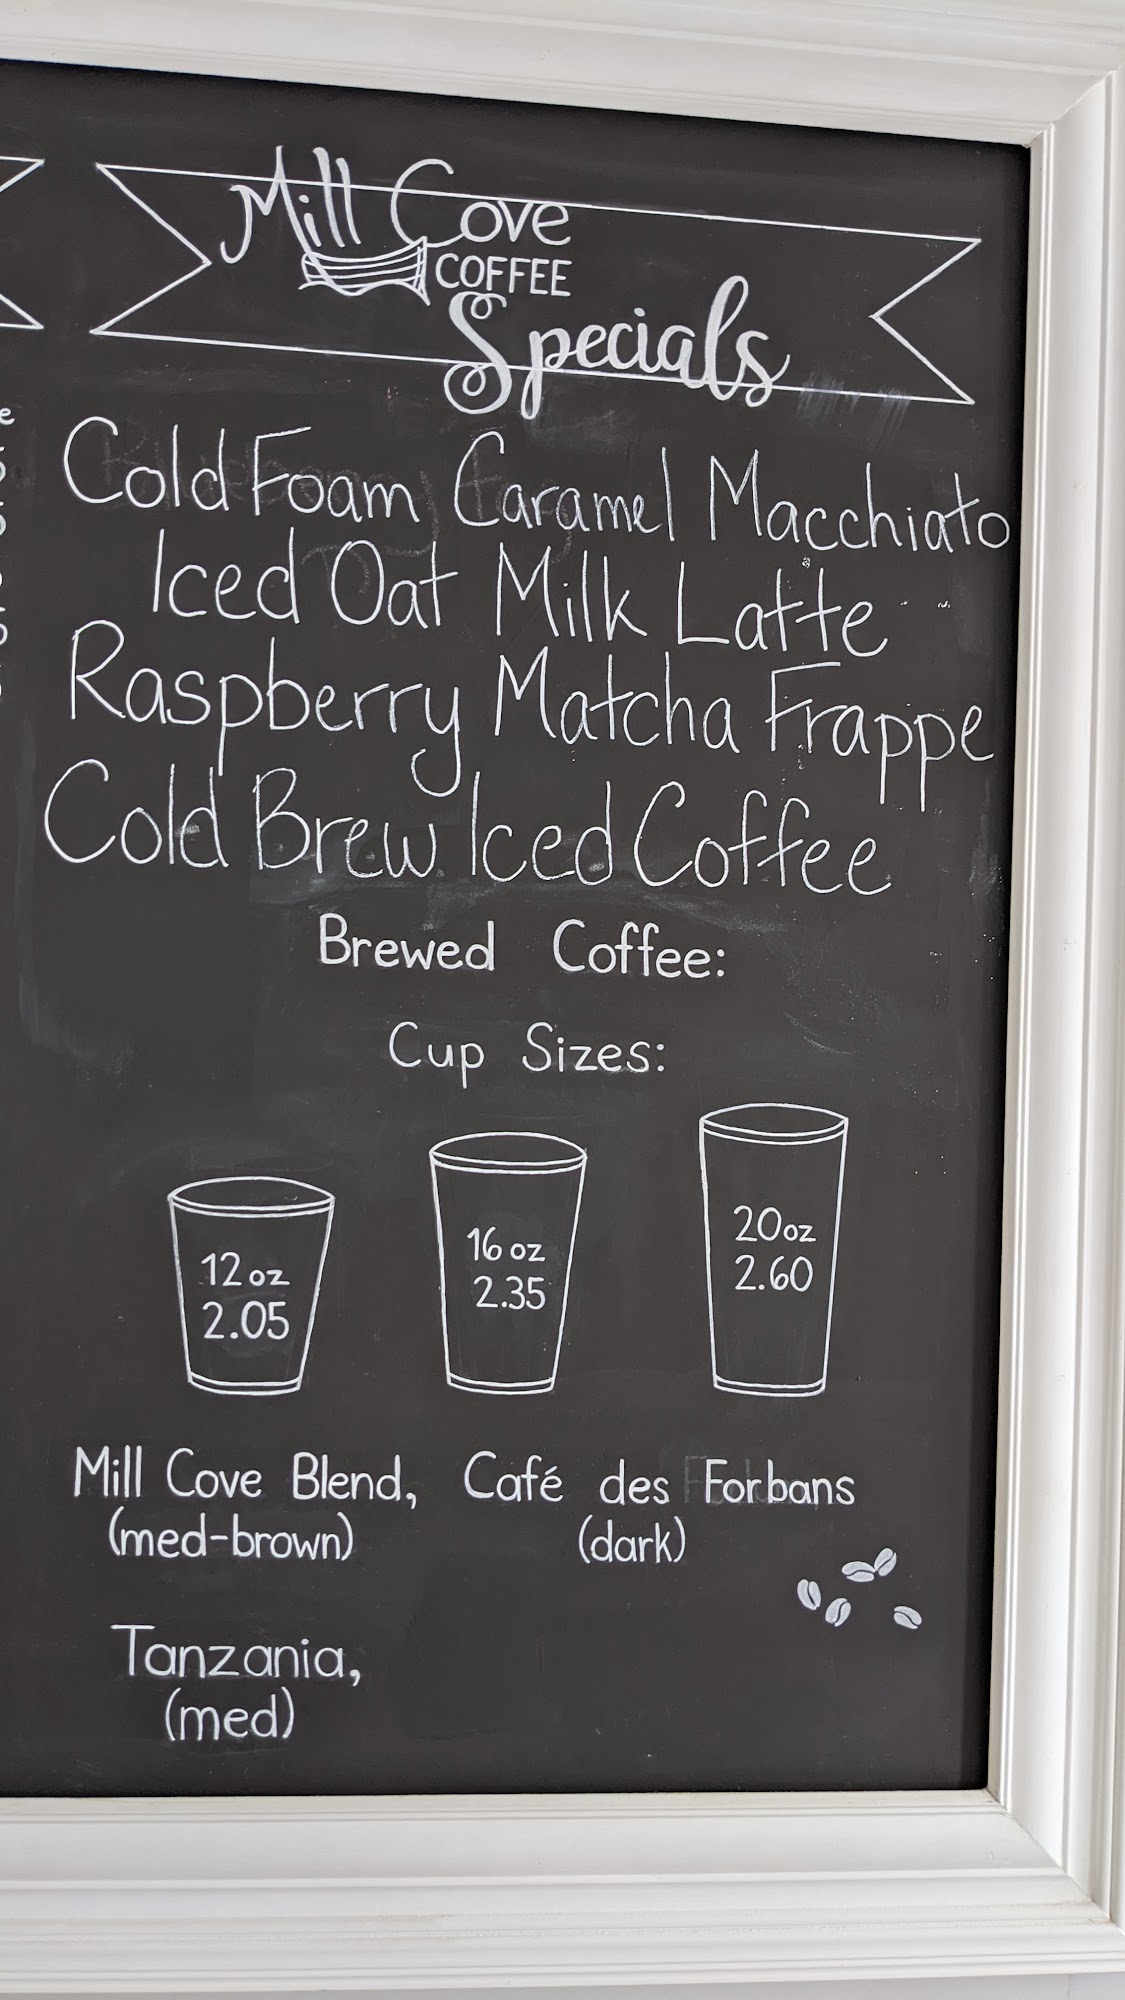 Mill Cove
COFFEE
Specials
Cold Foam Caramel Macchiato
Iced Oat Milk Latte
Raspberry Matcha Frappe
Cold Brew Iced Coffee
Brewed Coffee:
Cup Sizes:
12oz
2.05
16oz
2.35
20oz
2.60
Mill Cove Blend, Café des Forbans
(med-brown) (dark)
Tanzania,
(med)